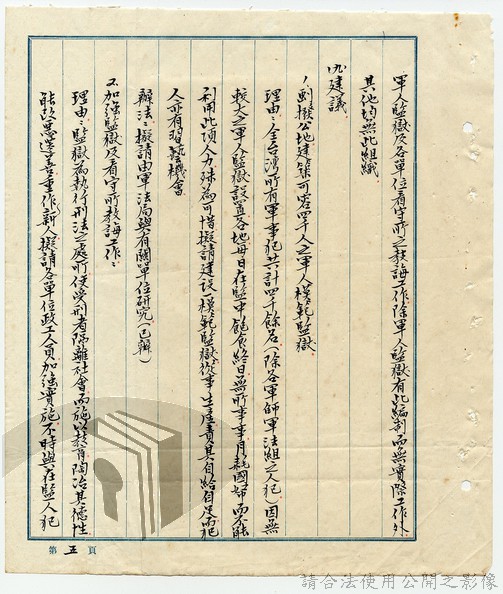 軍人監獄及各單位看守所之教誨工作除軍人監獄有此編制而無實際工作外
其他均無此組織
四建議
1劃撥公地建築可容四千人之軍人模範監獄
理由：全台灣所有軍事犯共計四千餘名（除各軍師軍法組之人犯）因無
較大之軍人監獄設置各地每日在監中飽食終日無所事事月耗國帑而不能
利用此項人力殊為可惜擬請建設模範監獄從事生產責其自給自足而犯
人亦有習藝機會
辦法：擬請由軍法局與有關單位研究（已辦）
2加強監獄及看守所教誨工作：
理由：監獄為執行刑法之處所使受刑者隔離社會而施以教育陶冶其德性
能改惡遷善重作新人擬請各單位政工人員加強實施不時與在監人犯
第五頁
請合法使用公開之影像